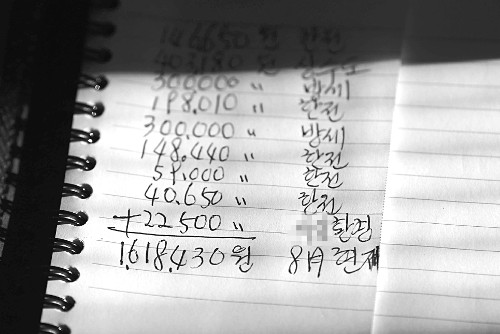 146650원 한전
403180 원
300,000 〃 방세
198.010 〃 한전
300.000 〃 방세
148.440 〃 한전
59.000 〃 한전
40.650 〃 한전
+22.500 〃
1.618.430원 8月 현재